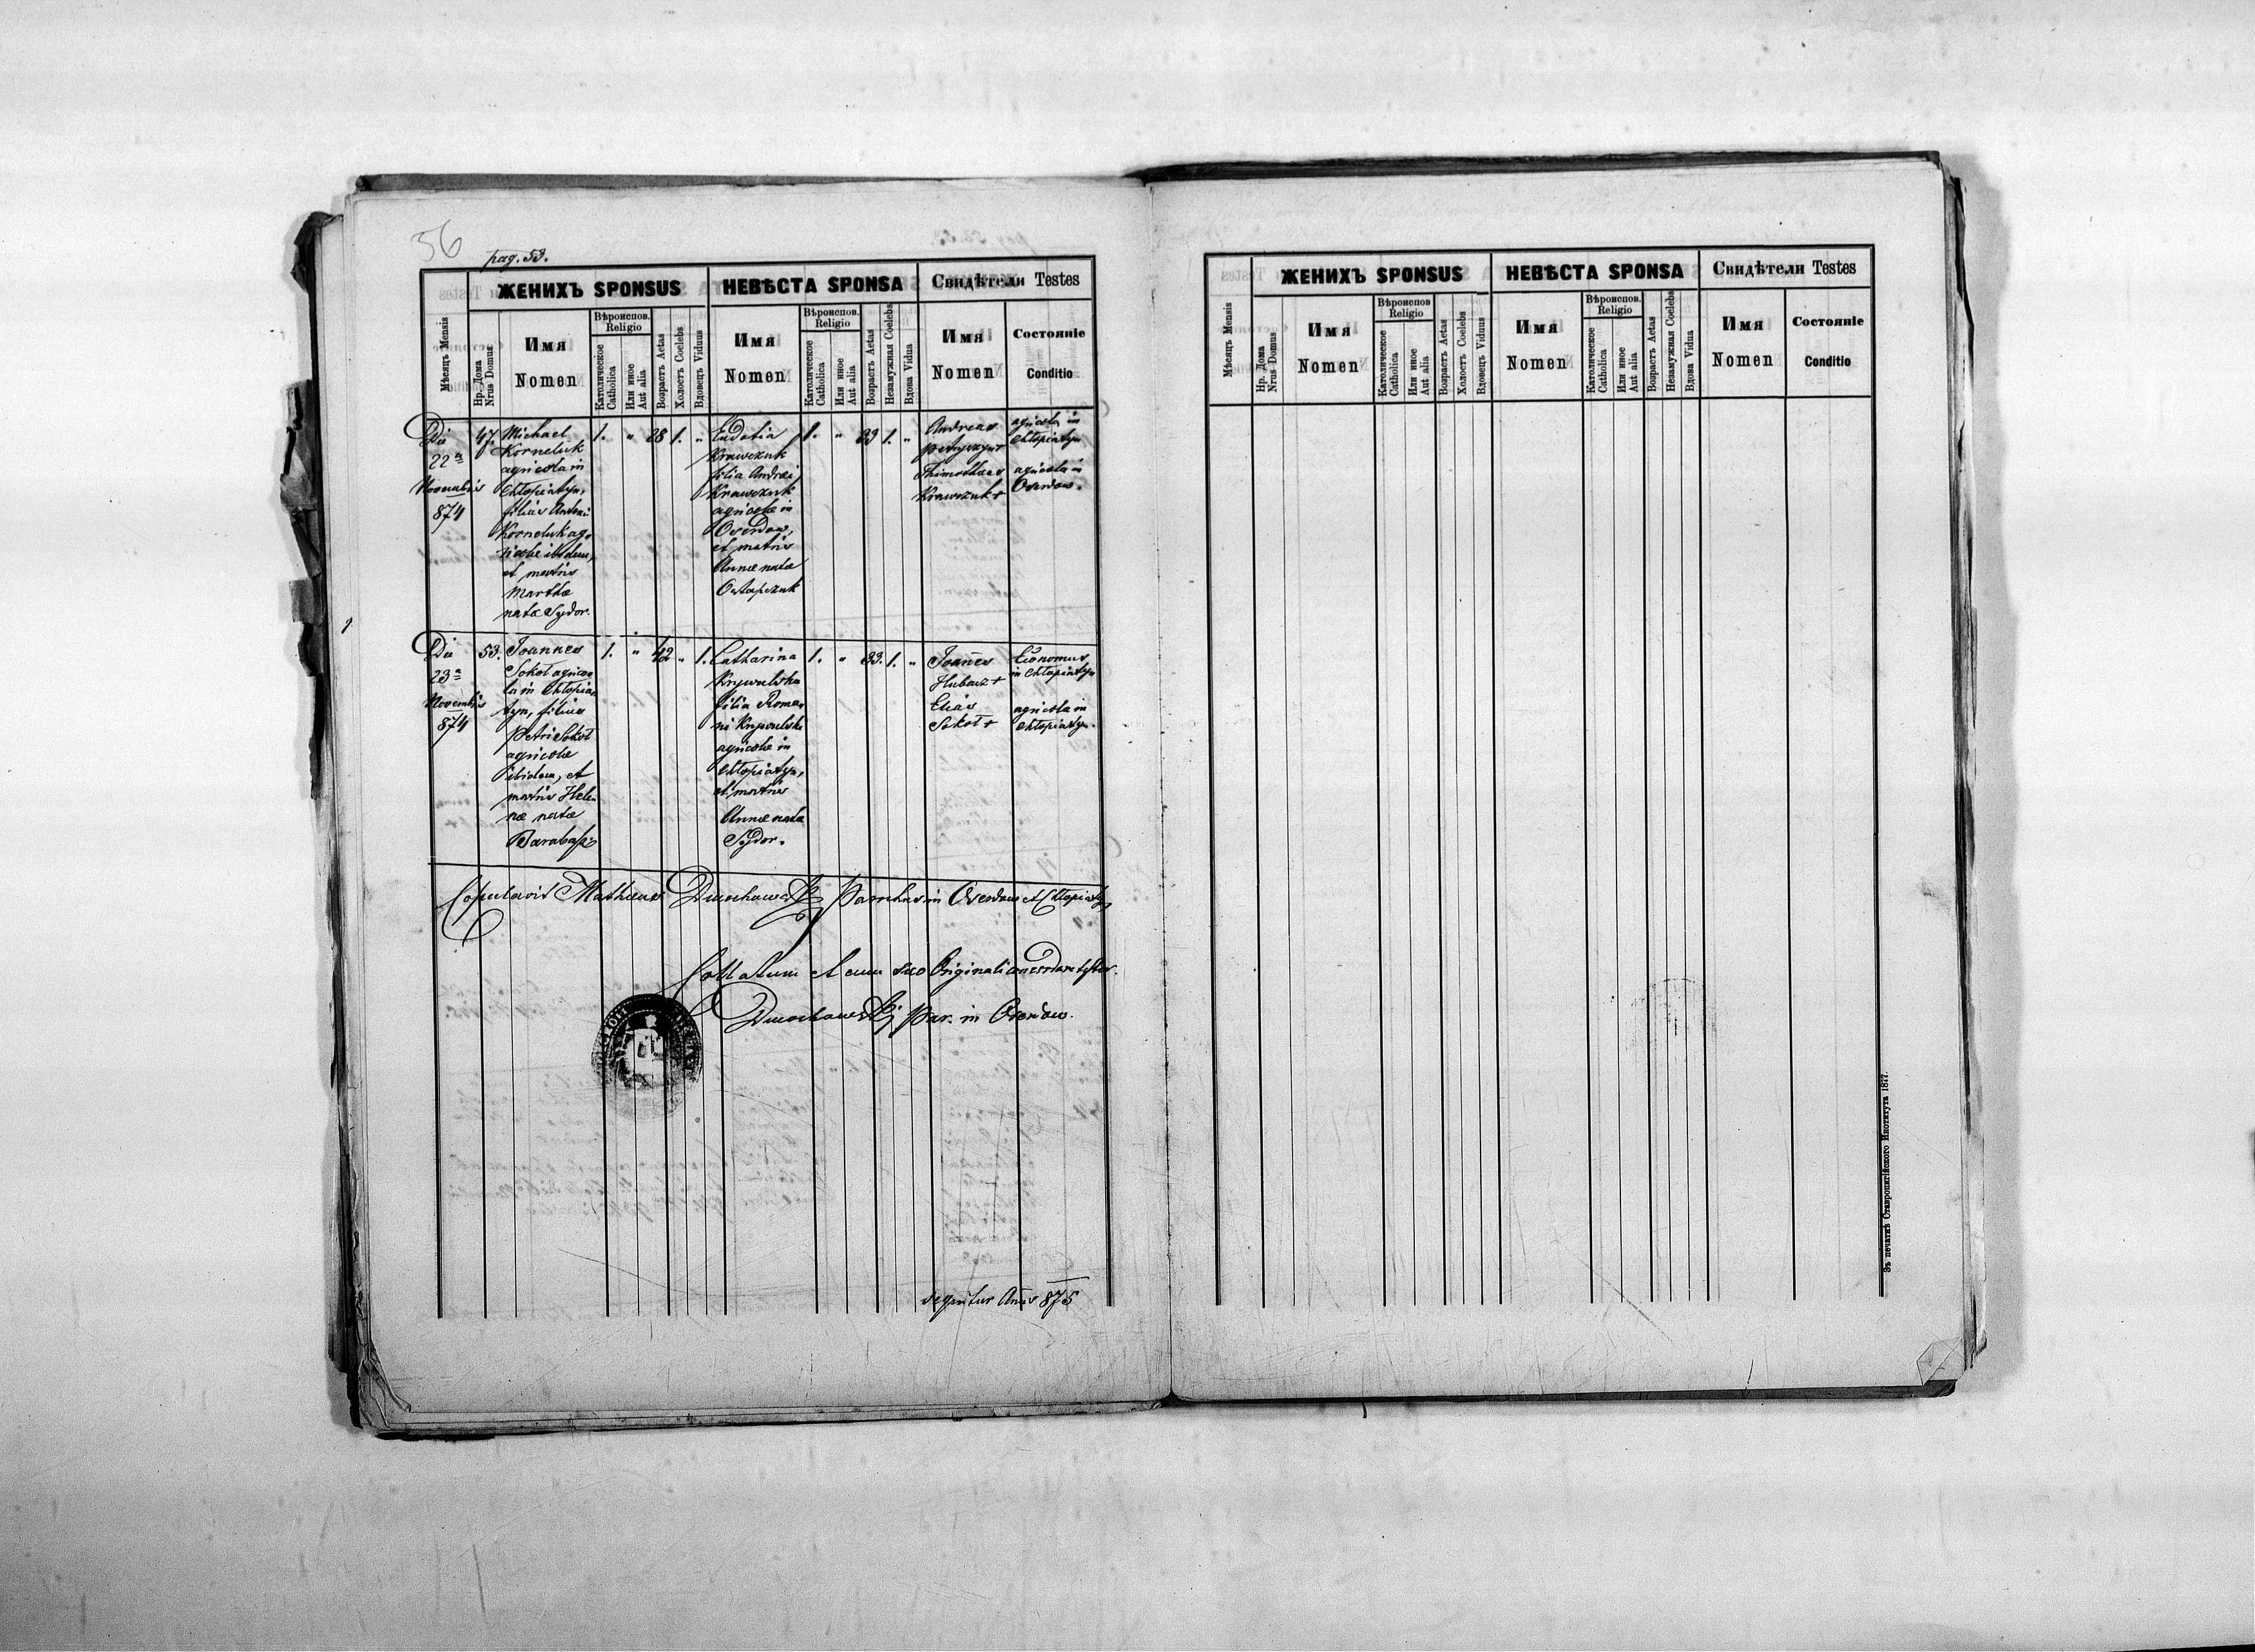 56
pag. 53.
ЖЕНИХЪ SPONSUS
НЕВѢСТА SPONSA
Свидѣтели Testes
Мѣсяцъ Mensis
Нр. Дома
Nrus Domus
Имя
Nomen
Вѣроиспов.
Religio
Католическое
Catholica
Или иное
Aut alia
Возрастъ Aetas
Холостъ Coelebs
Вдовецъ Viduus
Имя
Nomen
Вѣроиспов.
Religio
Католическое
Catholica
Или иное
Aut alia
Возрастъ Aetas
Незамужная Coelebs
Вдова Vidua
Имя
Nomen
Состоянiе
Conditio
Die
22a
Novembris
874
47.
Michael
Korneluk
agricola in
Chłopiatyn,
filius Antoni
Korneluk ag-
ricolae ibidem,
et matris
Marthae
natae Sydor.
1.
"
28
1.
"
Eudotia
Krawczuk
filia Andrei
Krawczuk
agricolae in
Oserdow,
et matris
Annae natae
Ostapczuk
1.
"
23
1.
"
Andreas
Thimotheus
Krawczuk +
agricola in
Chłopiatyn
agricola in
Oserdow.
Die
23a
Novembris
874
53.
Joannes
Sokoł agrico-
la in Chłopia-
tyn, filius
Petri Sokoł
agricolae
ibidem, et
matris Hele-
nae natae
1.
"
42
"
1.
Catharina
filia Roma-
ni
agricolae in
Chłopiatyn,
et matris
Annae natae
Sydor.
1.
"
33.
1.
"
Joannes
Elias
Sokoł +
Economus
in Chłopiatyn
agricola in
Chłopiatyn.
Copulavit Matheus parochus in Oserdow et Chłopiatyn
Collatum et cum suo Originali concordare testor.
par. in Oserdow.
sequitur Annus 875
ЖЕНИХЪ SPONSUS
НЕВѢСТА SPONSA
Свидѣтели Testes
Мѣсяцъ Mensis
Нр. Дома
Nrus Domus
Имя
Nomen
Вѣроиспов
Religio
Католическое
Catholica
Или иное
Aut alia
Возрастъ Aetas
Холостъ Coelebs
Вдовецъ Viduus
Имя
Nomen
Вѣроиспов.
Religio
Католическое
Catholica
Или иное
Aut alia
Возрастъ Aetas
Незамужная Coelebs
Вдова Vidua
Имя
Nomen
Состоянiе
Conditio
Зъ печатнѣ Ставропигiйского Института 1877.